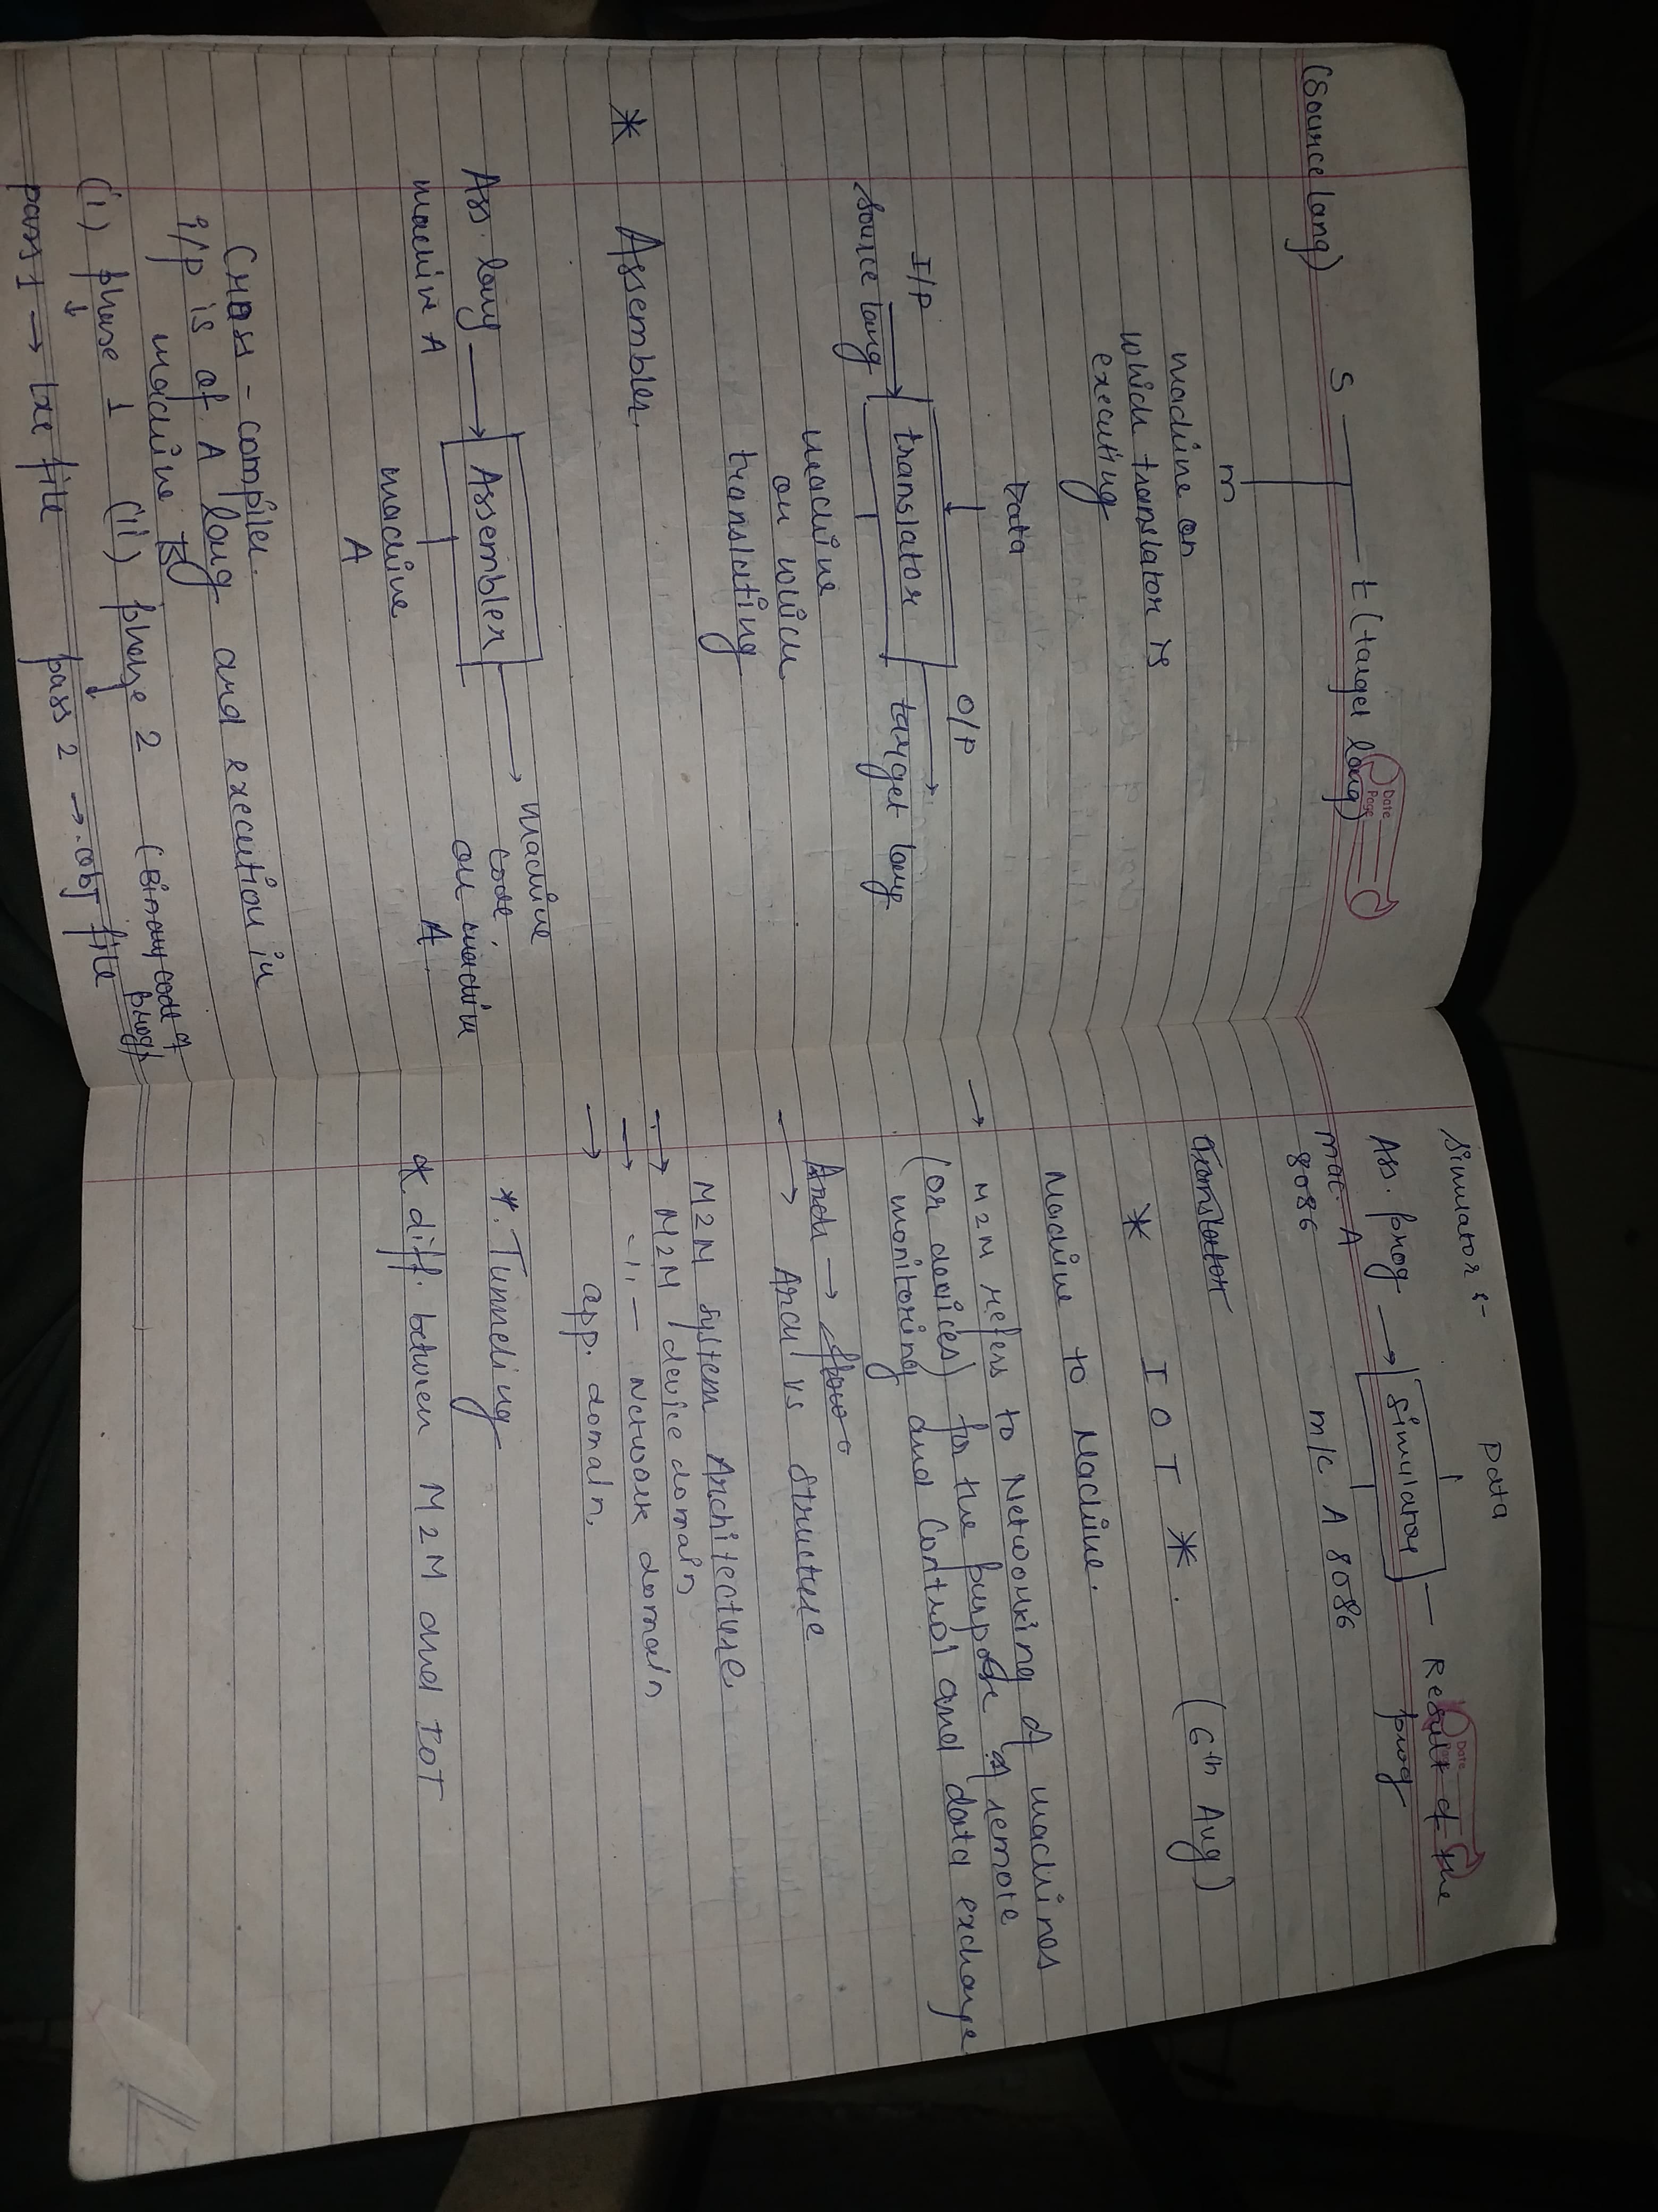 Date
Page
(Source lang) S t (target lang)
m
machine on
which translator is
executing
Data
I/P O/P
source lang translator target lang
machine
on which
translating
* Assembler.
Ass. lang → Assembler → machine
code
machine A on machine
A
machine
A
Cross - compiler.
i/p is of A lang and execution in
machine B
(i) phase 1 (ii) phase 2 (Binary code of
prog)
↓ ↓
pass 1 → file pass 2 → .obj file
Date
Page
Simulator :- Data
Ass. prog → Simulator — Result of the
prog
mac. A m/c A 8086
8086
Translator
* I O T *. (6th Aug)
Machine to Machine.
→ M2M refers to Networking of machines
(or devices) for the purpose of remote
monitoring and Control and data exchange
Arch →
→ Arch vs Structure
M2M System Architecture
→ M2M device domain
→ -11- Network domain
→ app. domain.
*. Tunneling
*. diff. between M2M and IOT